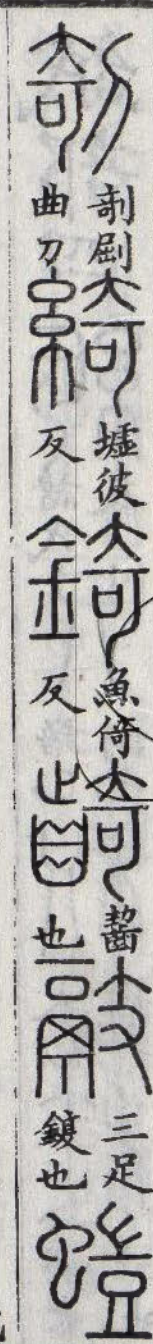 剞剞劂曲刀綺墟彼反錡魚倚反齮齧也䰙三足鍑也螘